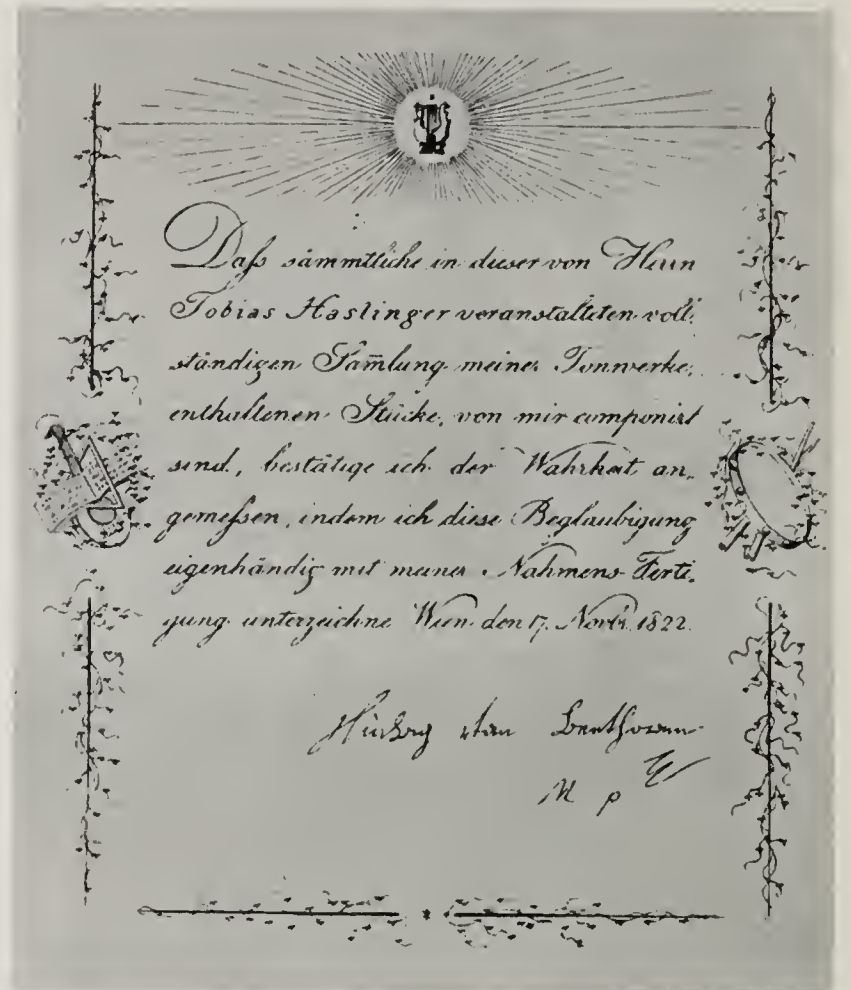 Daß sämmtliche in dieser von Herrn
Tobias Haslinger veranstalteten voll-
ständigen Sam̄lung meiner Tonwerke,
enthaltenen Stücke, von mir componirt
sind, bestätige ich der Wahrheit an-
gemeßen, indem ich diese Beglaubigung
eigenhändig mit meiner Nahmens-Ferti-
gung unterzeichne Wien den 17. Novbr. 1822.
Ludwig van Beethoven
M p